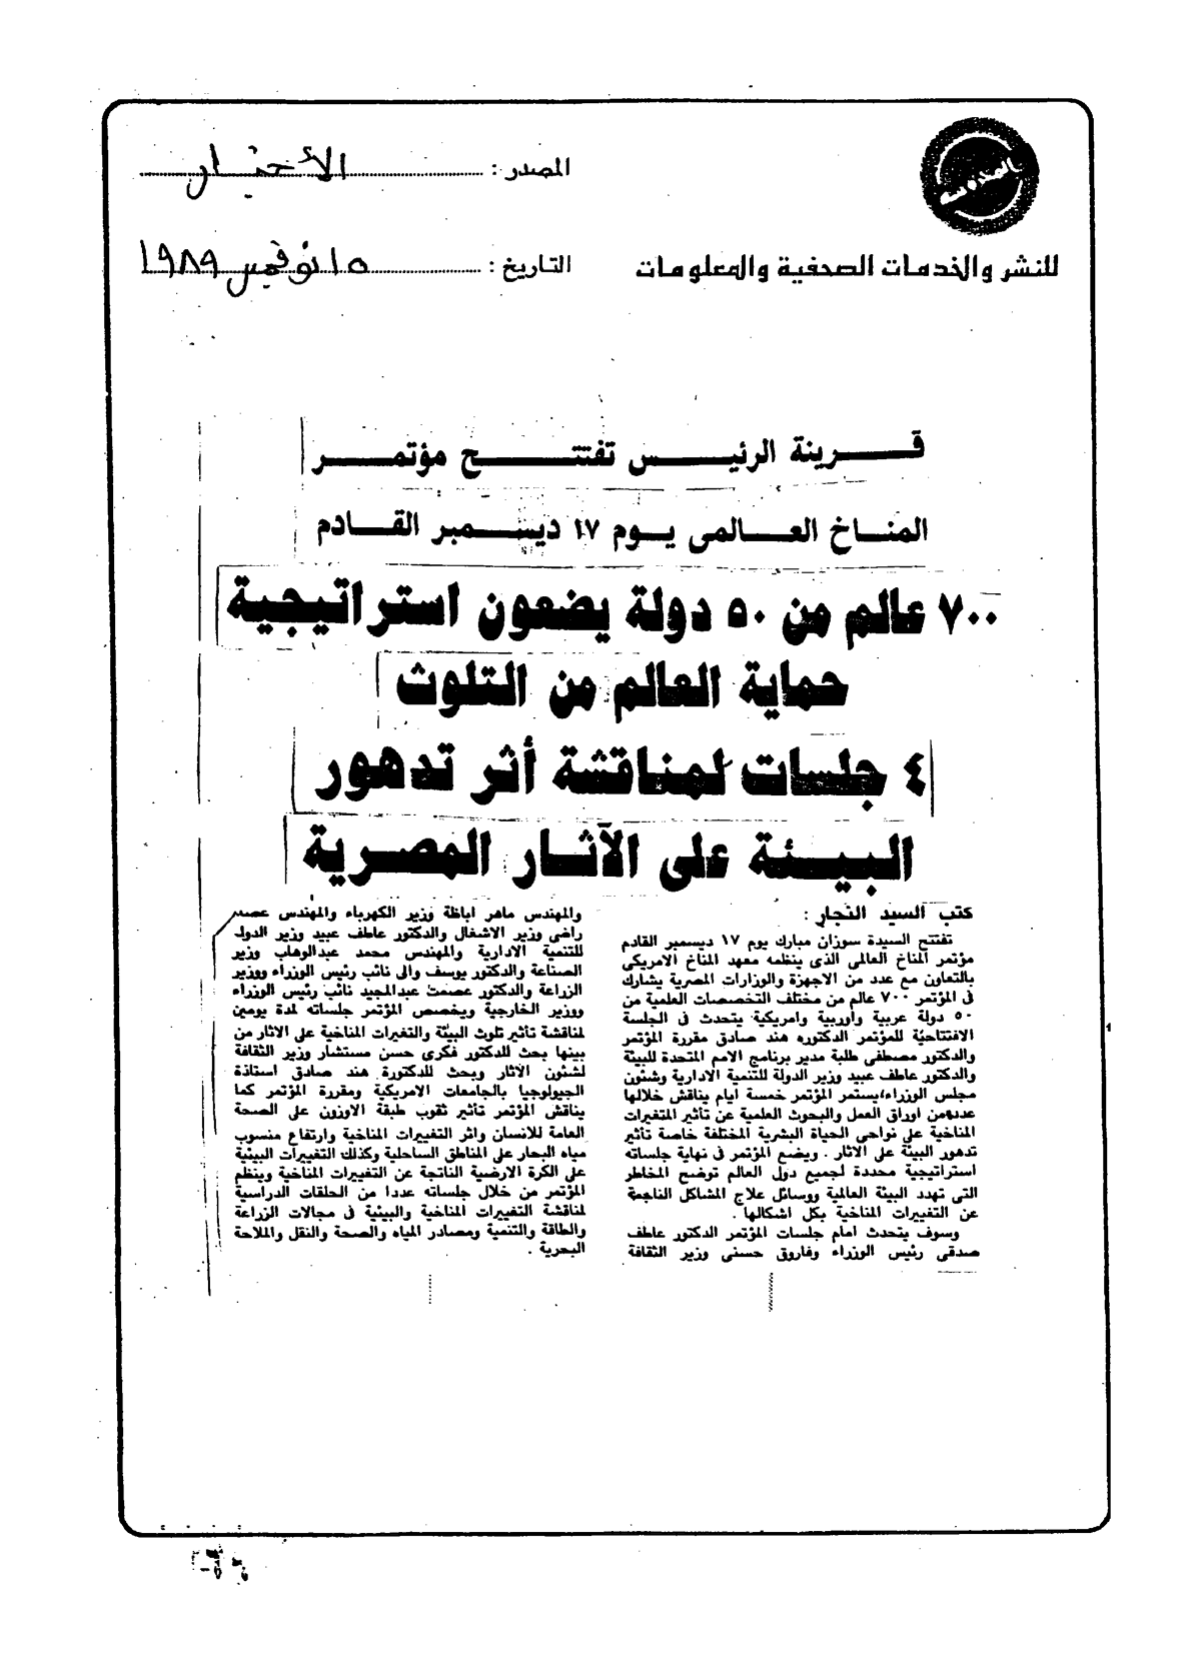 المصدر : الأخبار
للنشر والخدمات الصحفية والمعلومات
التاريخ : ١٥ نوفمبر ١٩٨٩
قرينة الرئيس تفتتح مؤتمر
المناخ العالمى يوم ١٧ ديسمبر القادم
٧٠٠ عالم من ٥٠ دولة يضعون استراتيجية
حماية العالم من التلوث
٤ جلسات لمناقشة أثر تدهور
البيئة على الآثار المصرية
كتب السيد النجار :
تفتتح السيدة سوزان مبارك يوم ١٧ ديسمبر القادم
مؤتمر المناخ العالمى الذى ينظمه معهد المناخ الامريكى
بالتعاون مع عدد من الاجهزة والوزارات المصرية يشارك
فى المؤتمر ٧٠٠ عالم من مختلف التخصصات العلمية من
٥٠ دولة عربية واوربية وامريكية يتحدث فى الجلسة
الافتتاحية للمؤتمر الدكتوره هند صادق مقررة المؤتمر
والدكتور مصطفى طلبة مدير برنامج الامم المتحدة للبيئة
والدكتور عاطف عبيد وزير الدولة للتنمية الادارية وشئون
مجلس الوزراء/يستمر المؤتمر خمسة ايام يناقش خلالها
عددمن اوراق العمل والبحوث العلمية عن تأثير المتغيرات
المناخية على نواحى الحياة البشرية المختلفة خاصة تأثير
تدهور البيئة على الآثار . ويضع المؤتمر فى نهاية جلساته
استراتيجية محددة لجميع دول العالم توضح المخاطر
التى تهدد البيئة العالمية ووسائل علاج المشاكل الناجمة
عن التغييرات المناخية بكل اشكالها .
وسوف يتحدث امام جلسات المؤتمر الدكتور عاطف
صدقى رئيس الوزراء وفاروق حسنى وزير الثقافة
والمهندس ماهر اباظة وزير الكهرباء والمهندس عصد
راضى وزير الاشغال والدكتور عاطف عبيد وزير الدول
للتنمية الادارية والمهندس محمد عبدالوهاب وزير
الصناعة والدكتور يوسف والى نائب رئيس الوزراء ووزير
الزراعة والدكتور عصمت عبدالمجيد نائب رئيس الوزراء
ووزير الخارجية ويخصص المؤتمر جلساته لمدة يومين
لمناقشة تأثير تلوث البيئة والتغيرات المناخية على الاثار من
بينها بحث للدكتور فكرى حسن مستشار وزير الثقافة
لشئون الآثار وبحث للدكتورة هند صادق استاذة
الجيولوجيا بالجامعات الامريكية ومقررة المؤتمر كما
يناقش المؤتمر تأثير ثقوب طبقة الاوزون على الصحة
العامة للانسان واثر التغييرات المناخية وارتفاع منسوب
مياه البحار على المناطق الساحلية وكذلك التغييرات البيئية
على الكرة الارضية الناتجة عن التغييرات المناخية وينظم
المؤتمر من خلال جلساته عددا من الحلقات الدراسية
لمناقشة التغييرات المناخية والبيئية فى مجالات الزراعة
والطاقة والتنمية ومصادر المياه والصحة والنقل والملاحة
البحرية .